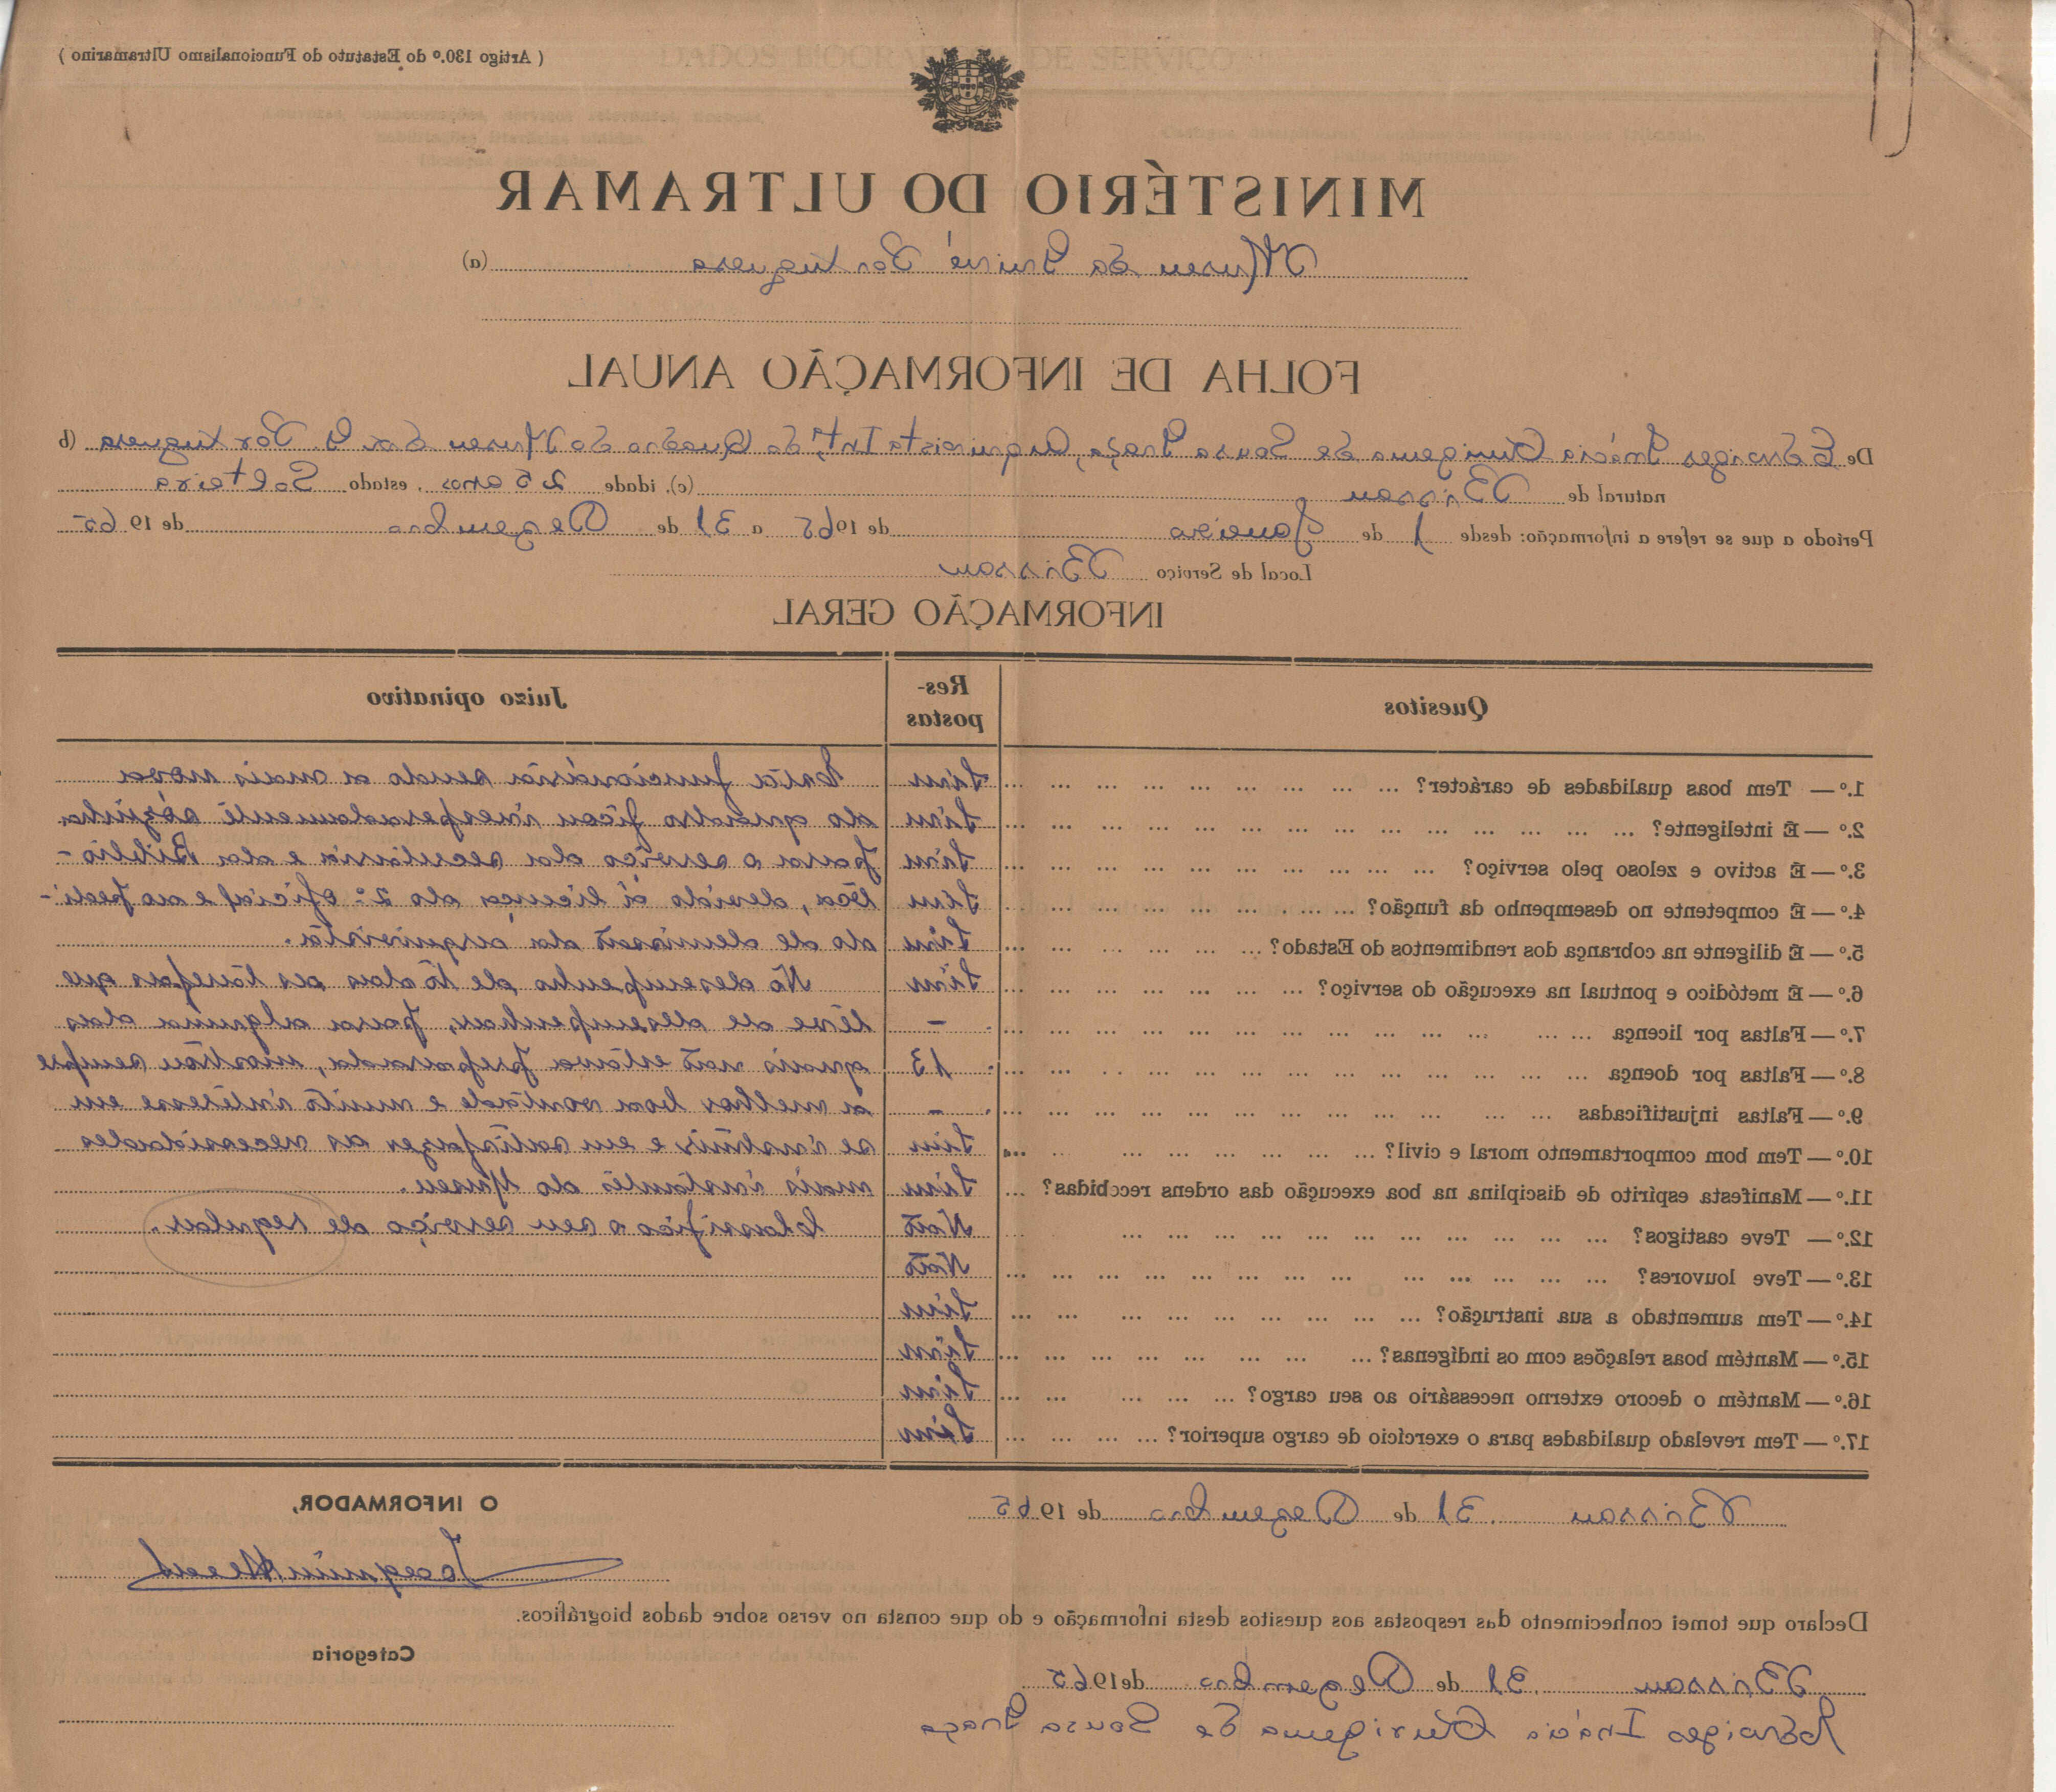 ( Artigo 130.º do Estatuto do Funcionalismo Ultramarino )
MINISTÉRIO DO ULTRAMAR
Museu da Guiné Portuguesa (a)
FOLHA DE INFORMAÇÃO ANUAL
De Edviges Inácia de Sousa Graça, Arquivista Int.ª do Quadro do Museu da G. Portuguesa (b)
natural de Bissau (c), idade 25 anos, estado Solteira
Período a que se refere a informação: desde 1 de Janeiro de 1965 a 31 de Dezembro de 1965
Local de Serviço Bissau
INFORMAÇÃO GERAL
Quesitos Respostas Juizo opinativo
1.º — Tem boas qualidades de carácter? Sim Esta funcionária sendo a mais nova
2.º — É inteligente? Sim do quadro ficou inesperadamente sòzinha
3.º — É activo e zeloso pelo serviço? Sim para o serviço da secretaria e da Biblio-
4.º — É competente no desempenho da função? Sim teca, devido à licença do 2.º oficial e ao pedi-
5.º — É diligente na cobrança dos rendimentos do Estado? Sim do de demissão da arquivista.
6.º — É metódico e pontual na execução do serviço? Sim No desempenho de tôdas as tarefas que
7.º — Faltas por licença - teve de desempenhar, para alguma das
8.º — Faltas por doença 13 quais não estava preparada, mostrou sempre
9.º — Faltas injustificadas - a melhor boa vontade e muito interesse em
10.º — Tem bom comportamento moral e civil? Sim se instruir e em satisfazer as necessidades
11.º — Manifesta espírito de disciplina na boa execução das ordens recebidas? Sim mais instantes do Museu.
12.º — Teve castigos? Não Classifico o seu serviço de regular.
13.º — Teve louvores? Não
14.º — Tem aumentado a sua instrução? Sim
15.º — Mantém boas relações com os indígenas? Sim
16.º — Mantém o decoro externo necessário ao seu cargo? Sim
17.º — Tem revelado qualidades para o exercício de cargo superior? Sim
Bissau 31 de Dezembro de 1965
O INFORMADOR,
Joaquim
Declaro que tomei conhecimento das respostas aos quesitos desta informação e do que consta no verso sobre dados biográficos.
Categoria
Bissau 31 de Dezembro de 1965
Edviges Inácia de Sousa Graça